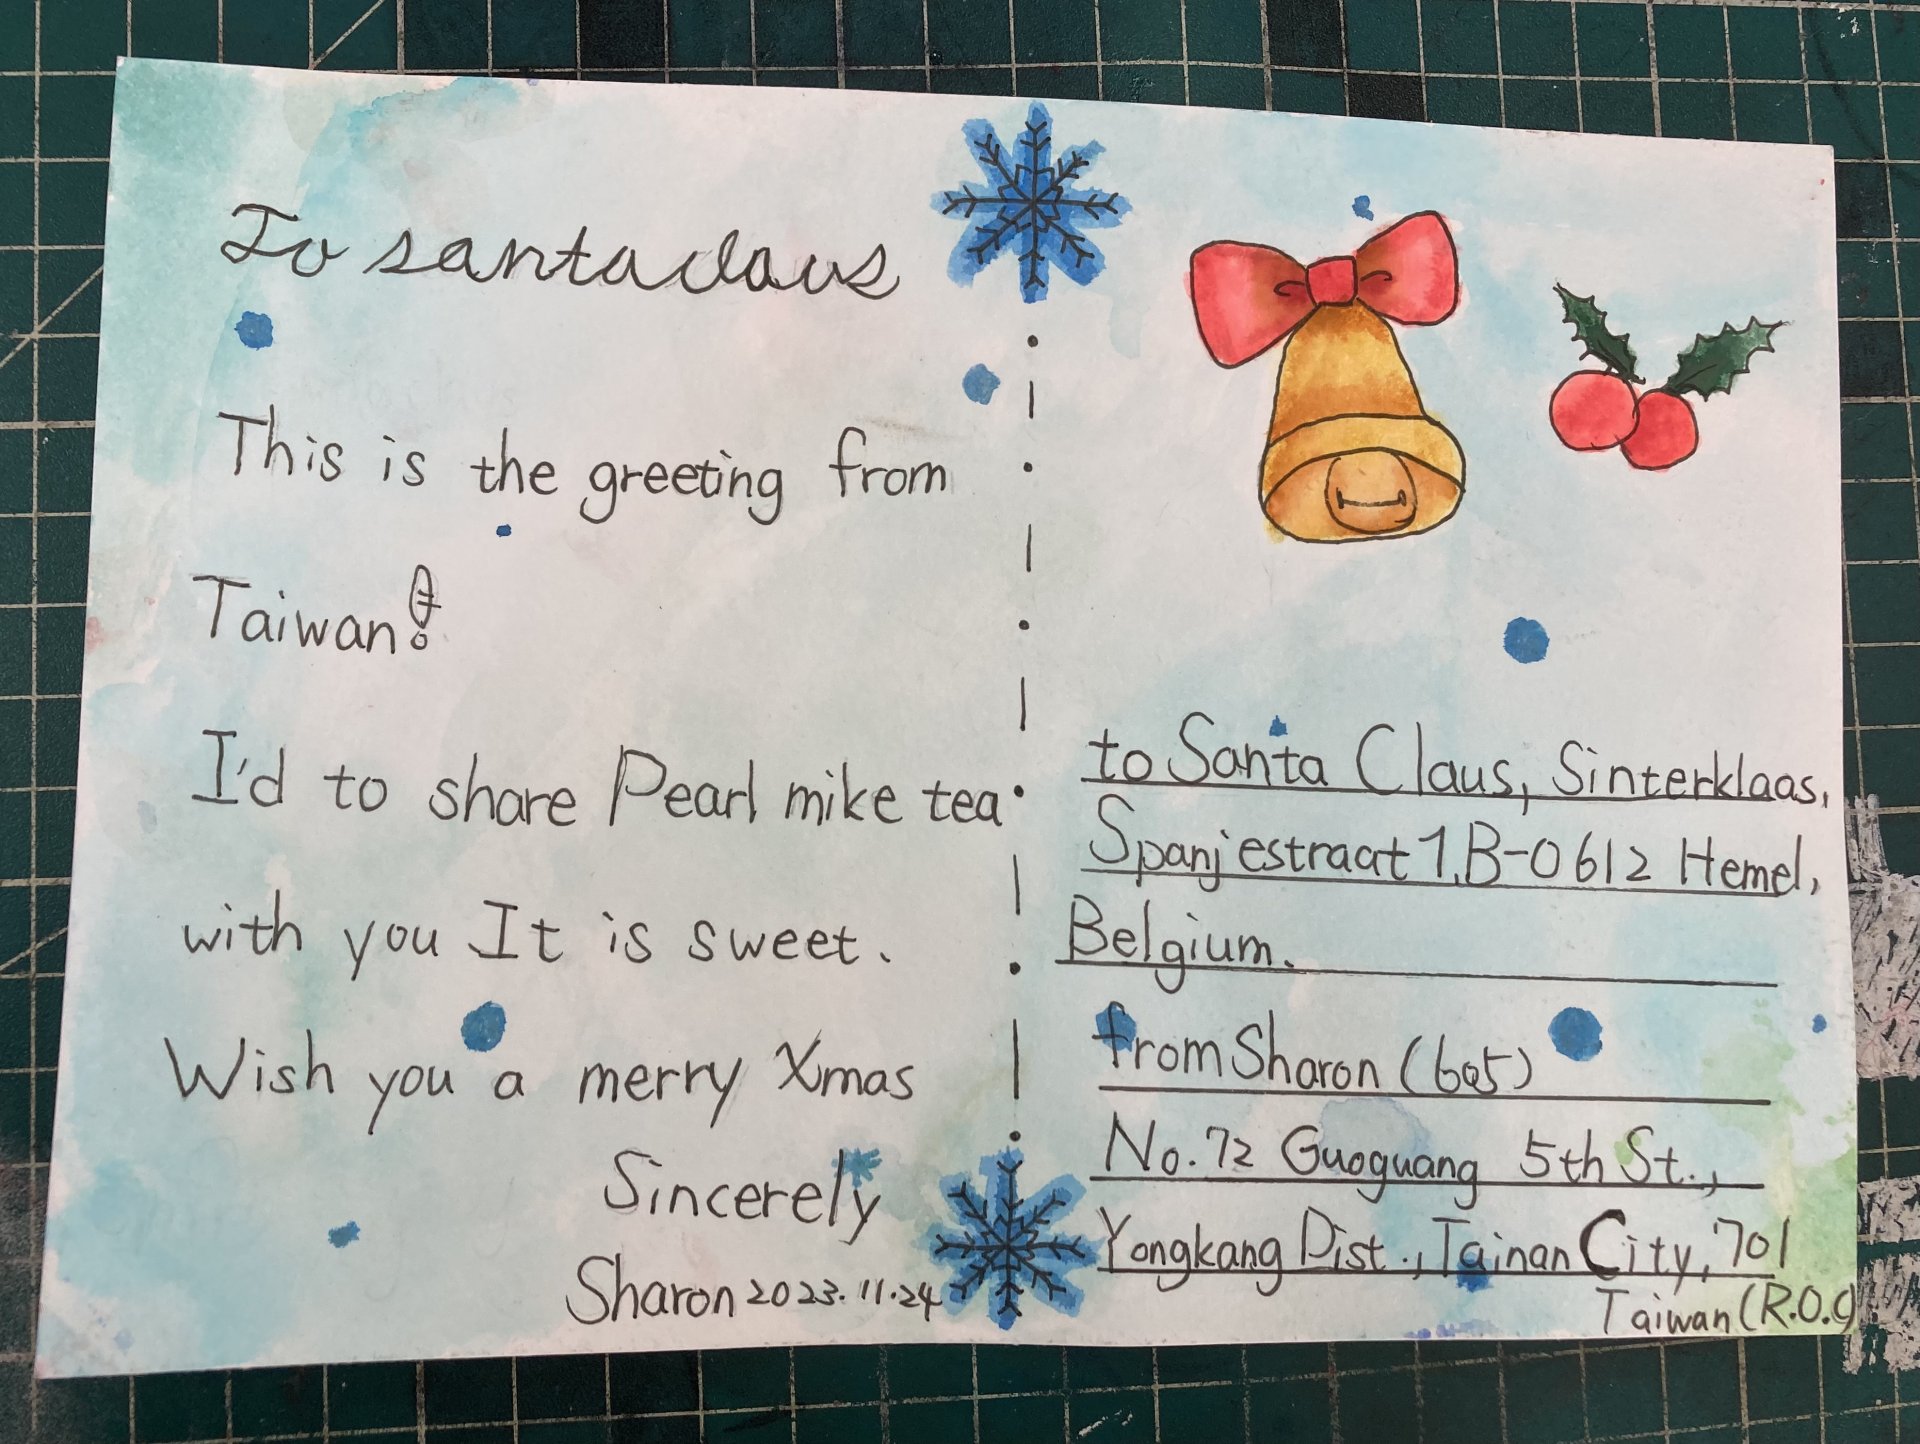 To santa claus
This is the greeting from
Taiwan!
I'd to share Pearl mike tea
with you It is sweet.
Wish you a merry Xmas
Sincerely
Sharon 2023.11.24
to Santa Claus, Sinterklaas,
Spanjestraat 1, B-0612 Hemel,
Belgium.
from Sharon (605)
No.72 Guoguang 5th St.,
Yongkang Dist., Tainan City, 701
Taiwan (R.O.C)